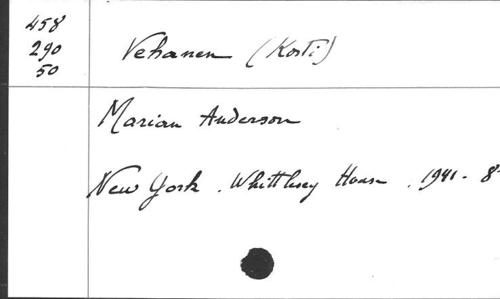 458
290
50
Vehanen (Kosti)
Marian Anderson
New York. Whittlesey House. 1941 - 8°